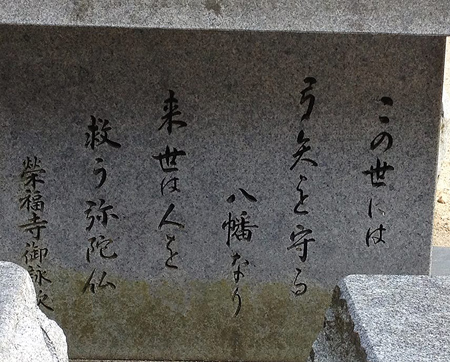 この世には
弓矢を守る
八幡なり
来世は人を
救う弥陀仏
榮福寺御詠歌